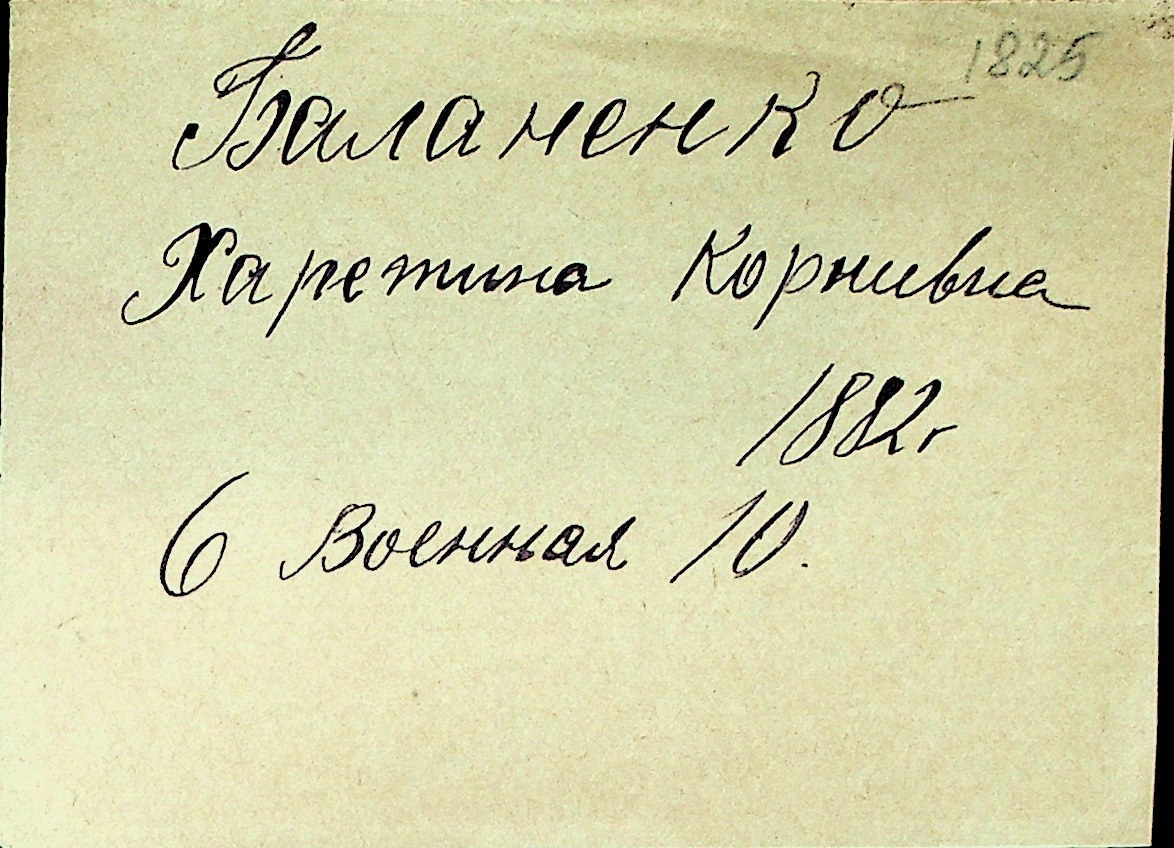 1825
Баланенко
Харетина Корнивна
1882г
6 Военная 10.